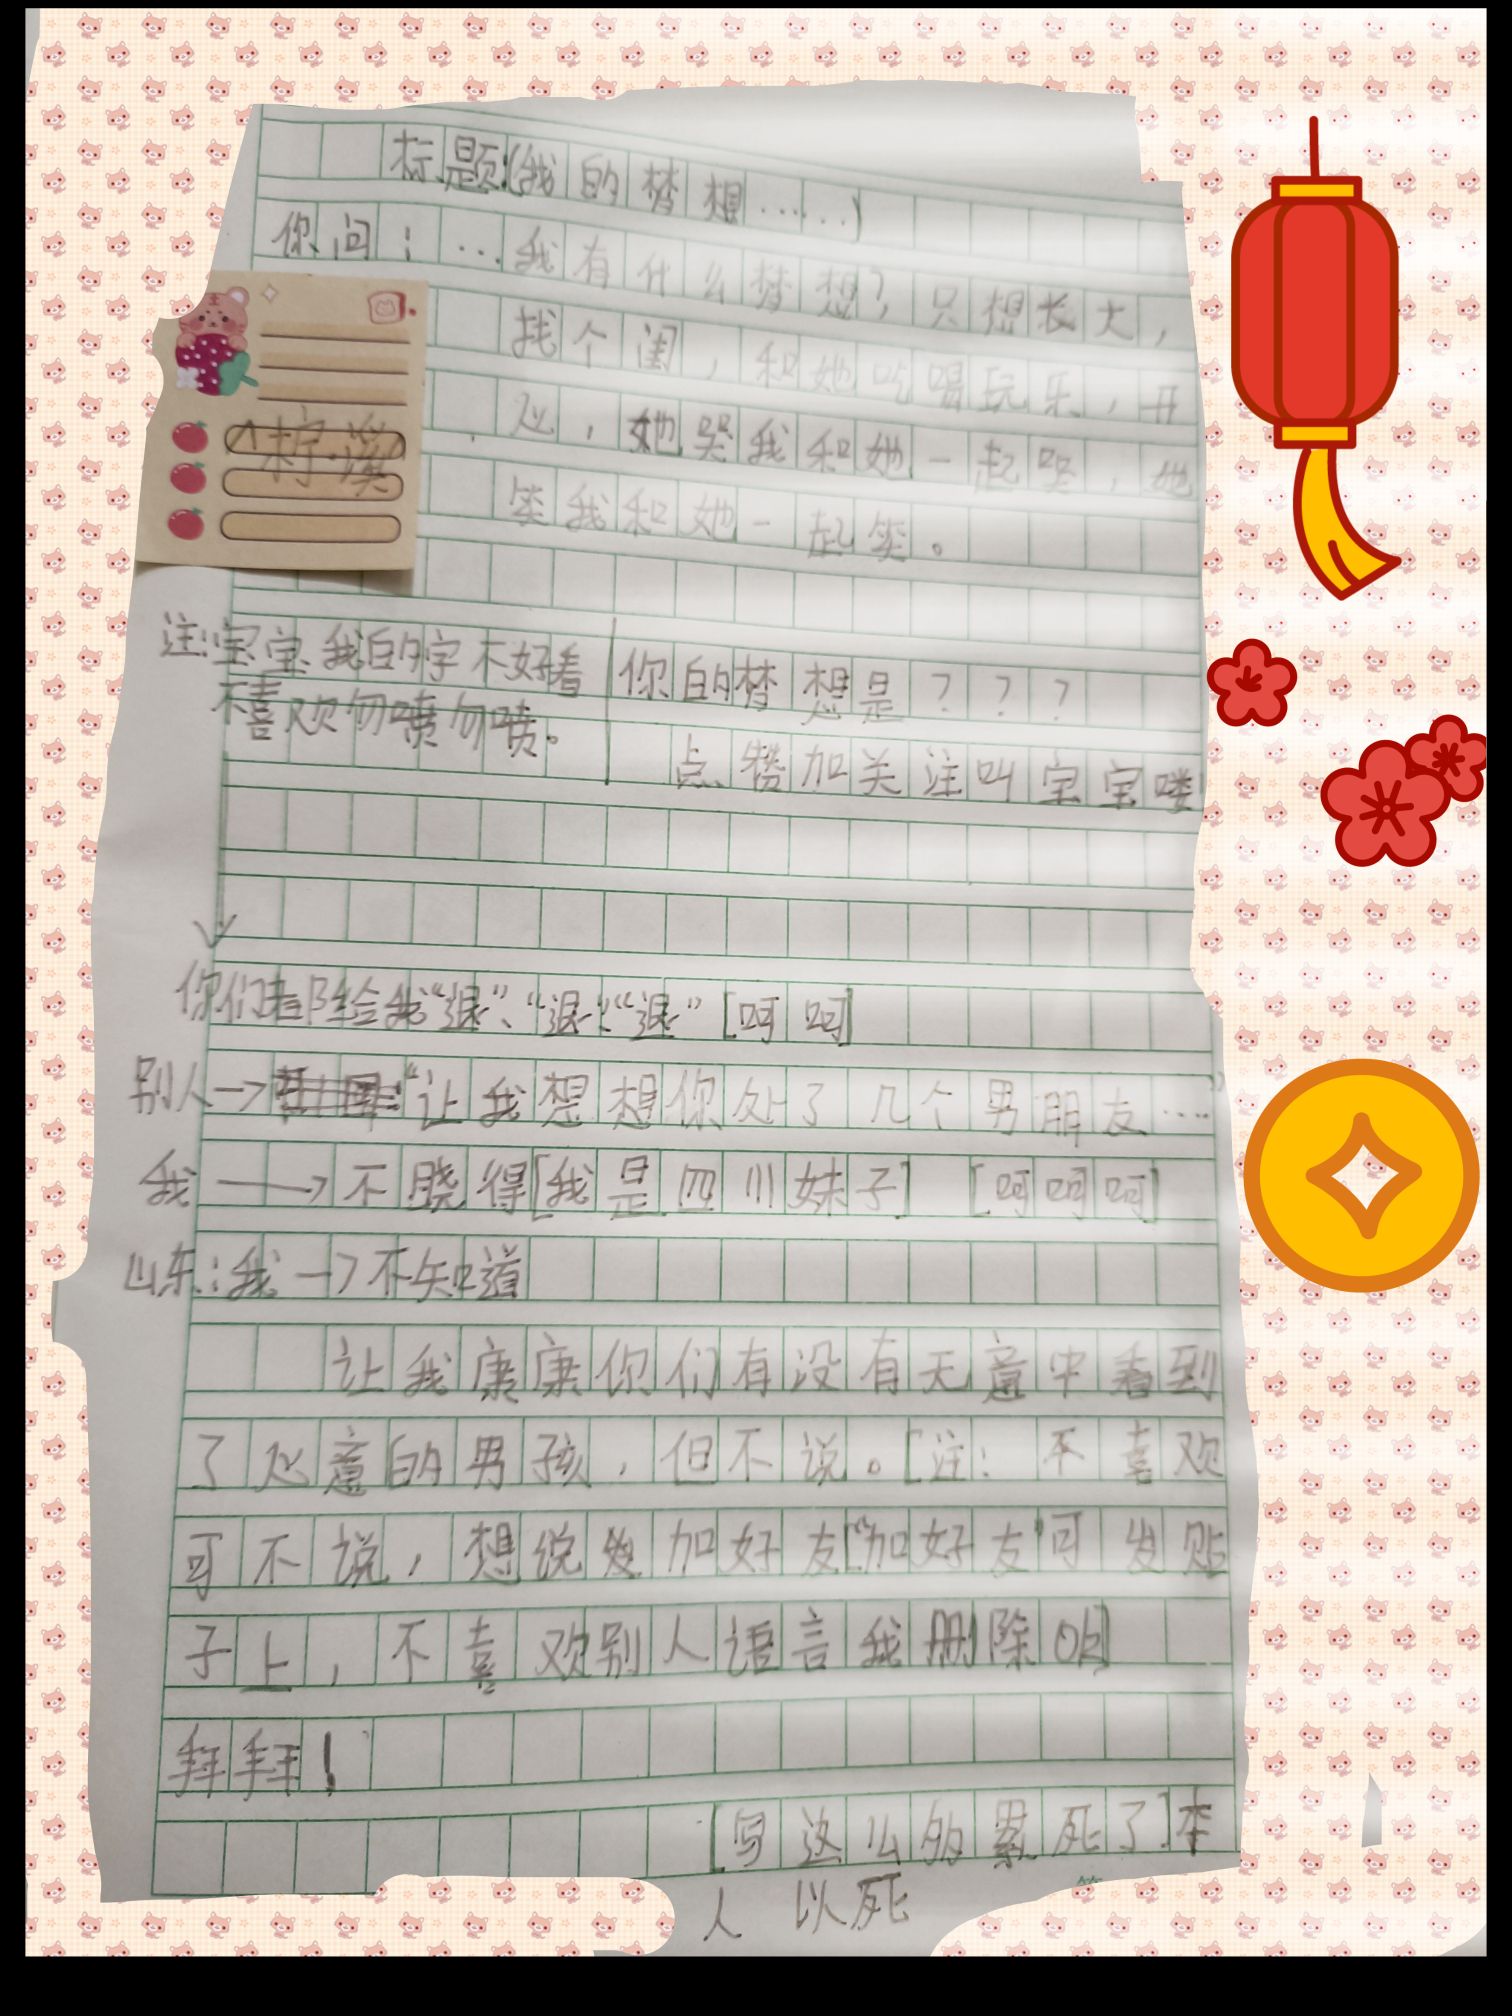 标题(我的梦想……)
你问:…我有什么梦想?只想长大,
找个闺,和她吃喝玩乐,开
心,她哭我和她一起哭,她
笑我和她一起笑。
柠溪
注:宝宝我的字不好看
不喜欢勿喷勿喷。
你的梦想是???
点赞加关注叫宝宝喽
你们都给我“退”、“退”“退”[呵呵]
别人→“让我想想你处了几个男朋友……”
我→不晓得[我是四川妹子] [呵呵呵]
山东:我→不知道
让我康康你们有没有无意中看到
了心意的男孩,但不说。[注:不喜欢
可不说,想说发加好友[“加好友”可发贴
子上,不喜欢别人语言我删除ok]
拜拜!
[写这么多累死了]本
人以死